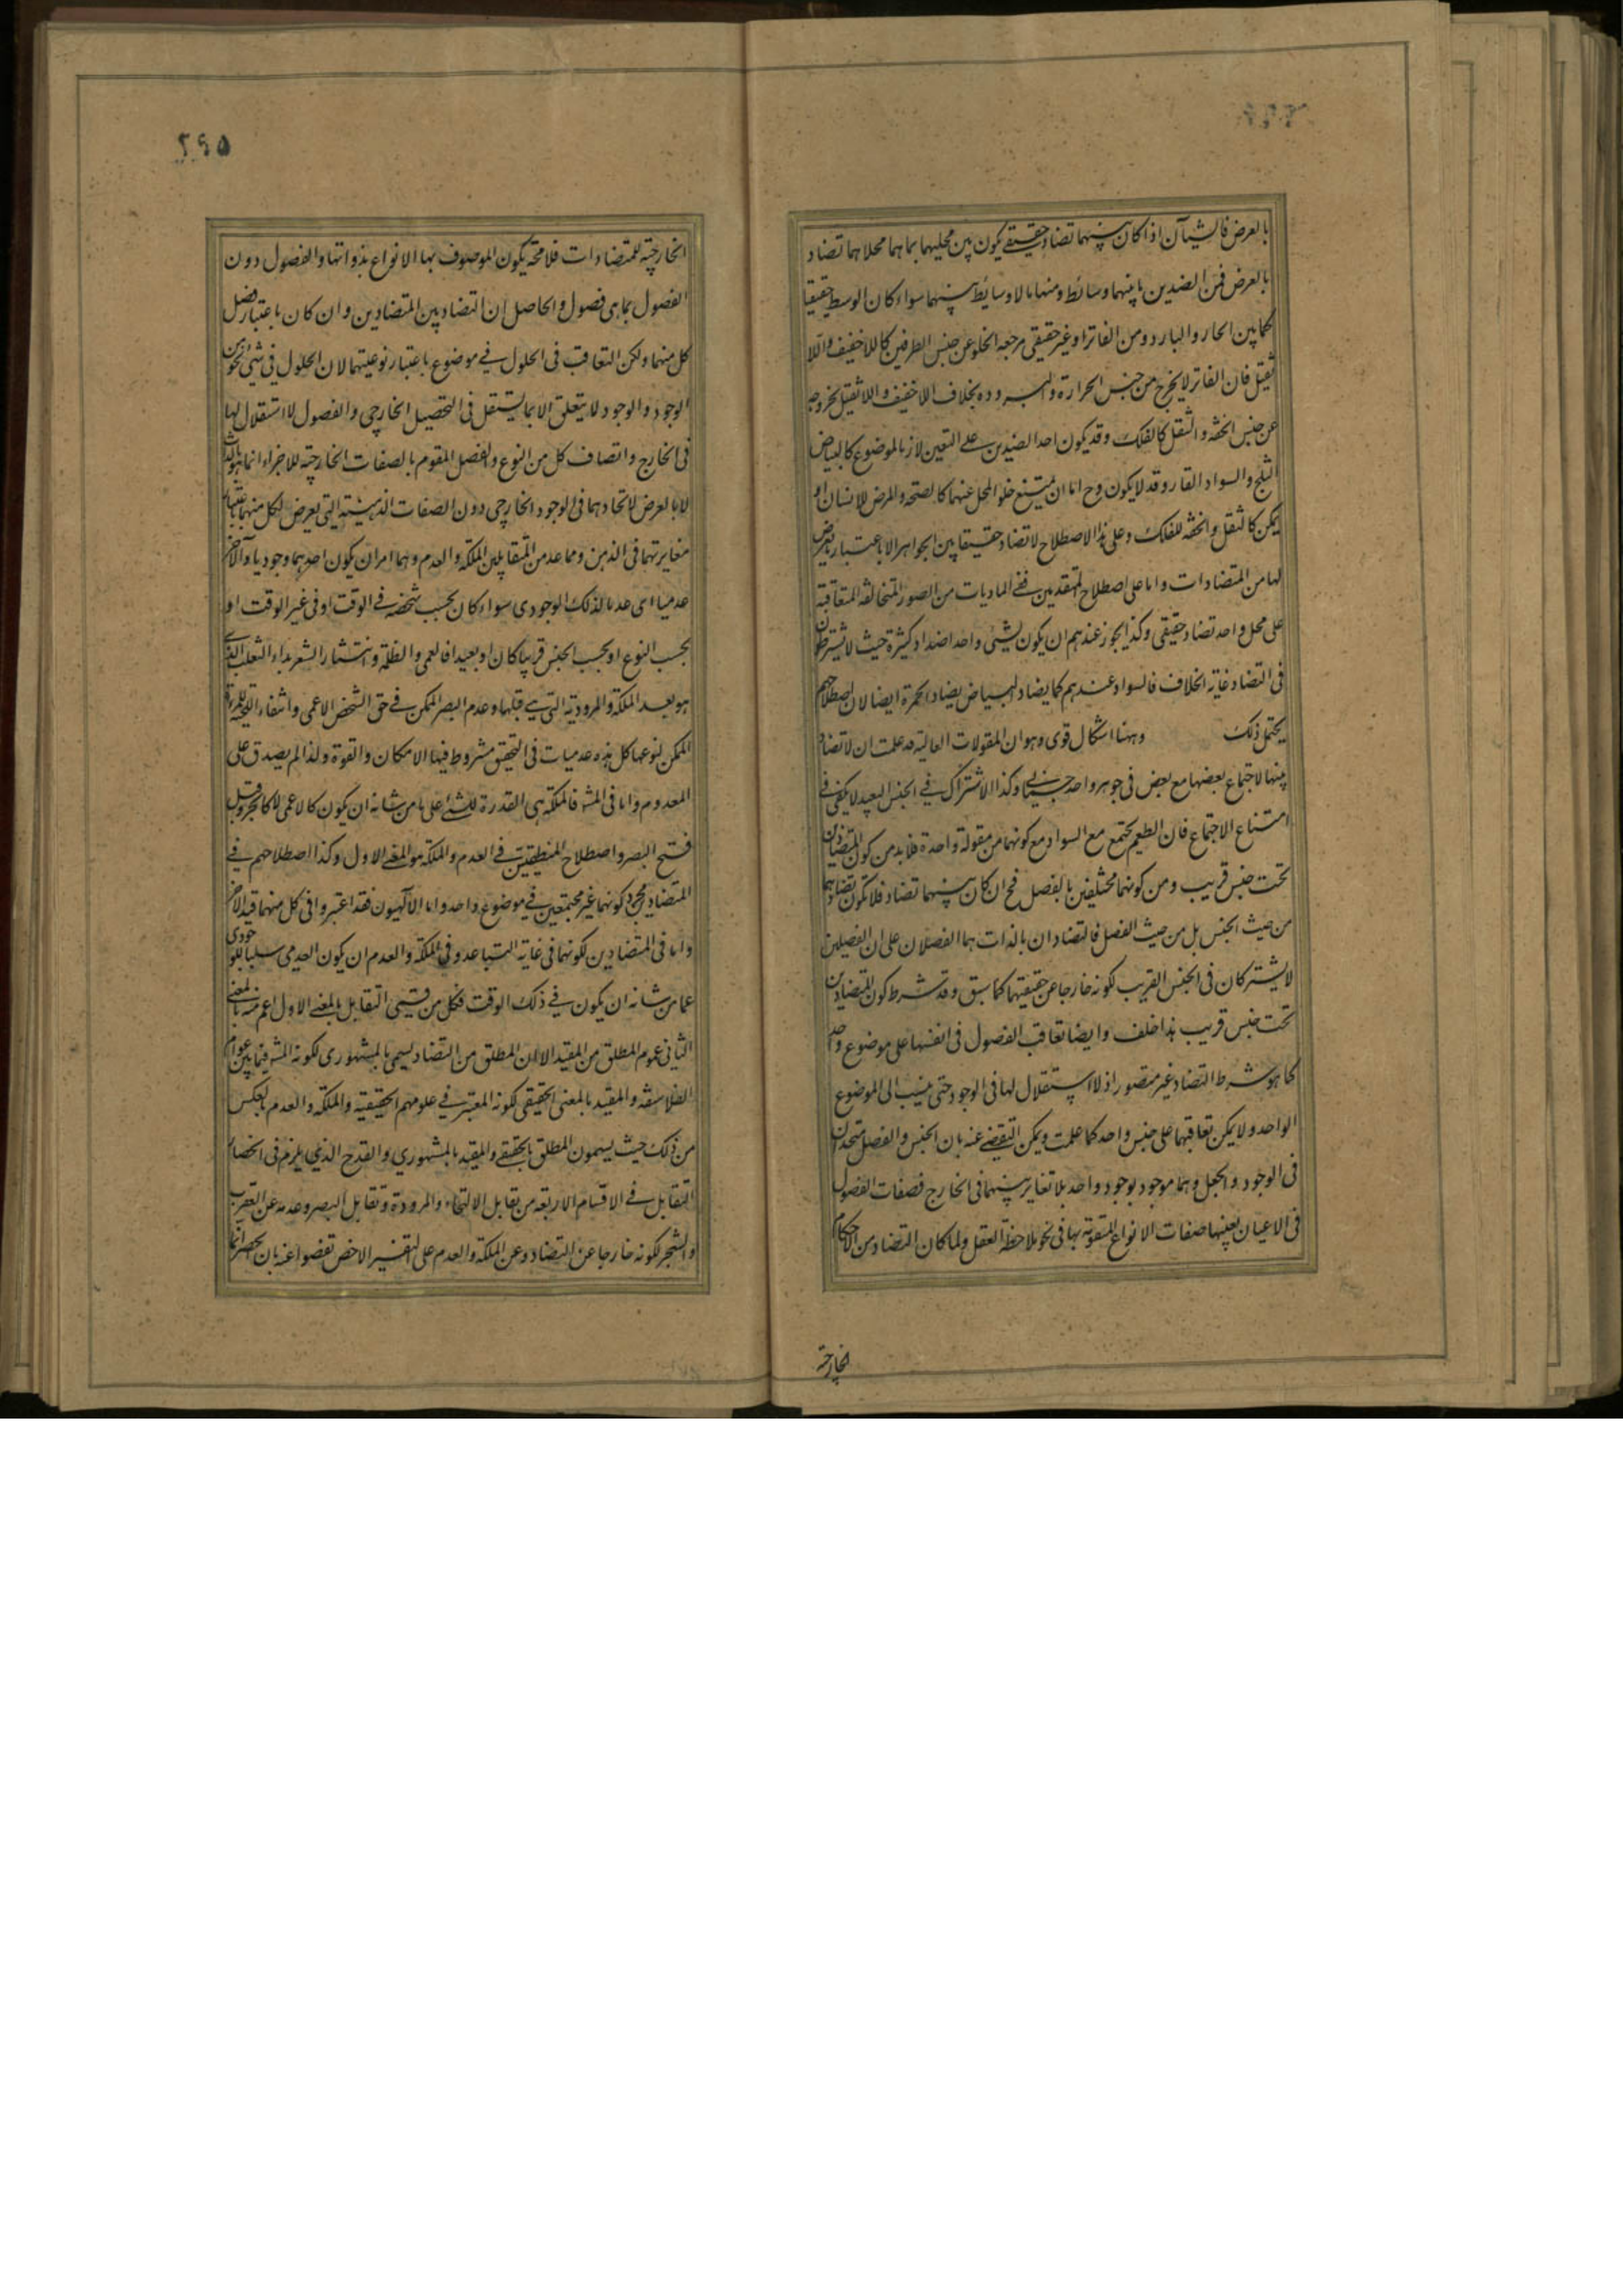 بالعرض فالشيآن اذا كان بينهما تضاد حقيقے يكون بين محليهما بما هما محلا هما تضاد
بالعرض فمن الضدين ما بينهما وسائط ومنها ما لا وسائط بينهما سواء كان الوسط حقيقيا
كما بين الحار والبارد ومن الفاتر او غير حقيقى مرجعه الخلو عن جنس الطرفين كاللاخفيف واللا
ثقيل فان الفاتر لا يخرج من جنس الحرارة والبرودة بخلاف اللاخفيف واللاثقيل لخروجه
عن جنس الخفة والثقل كالفلك وقد يكون احد الضدين على التعين لازما لموضوع كالبياض
الثلج والسواد القار وقد لا يكون وح اما ان يمتنع خلو المحل عنهما كالصحة والمرض للانسان او
يمكن كالثقل والخفة للفلك وعلى هذا الاصطلاح لا تضاد حقيقيا بين الجواهر الا باعتبار ما يعرض
لها من المتضادات واما على اصطلاح المتقدمين ففى الماديات من الصور المتخالفة المتعاقبة
على محل واحد تضاد حقيقى وكذا يجوز عندهم ان يكون لشئى واحد اضداد كثيرة حيث لا يشترطون
فى التضاد غاية الخلاف فالسواد عندهم كما يضاد البياض يضاد الحمرة ايضا لان اصطلاحهم
يحتمل ذلك وههنا اشكال قوى وهو ان المقولات العالية قد علمت ان لا تضاد
بينها لاجتماع بعضها مع بعض فى جوهر واحد جسمانى وكذا الاشتراك فى الجنس البعيد لا يكفى فى
امتناع الاجتماع فان الطعم يجتمع مع السواد مع كونهما من مقولة واحدة فلابد من كون المتضادين
تحت جنس قريب ومن كونهما مختلفين بالفصل فح ان كان بينهما تضاد فلا يكون تضادهما
من حيث الجنس بل من حيث الفصل فالتضادان بالذات هما الفصلان على ان الفصلين
لا يشتركان فى الجنس القريب لكونه خارجا عن حقيقتهما كما سبق وقد شرط كون المتضادين
تحت جنس قريب هذا خلف وايضا تعاقب الفصول فى انفسها على موضوع واحد
كما هو شرط التضاد غير متصور اذ لا استقلال لها فى الوجود حتى ينسب الى الموضوع
الواحد ولا يمكن تعاقبهما على جنس واحد كما علمت ويمكن التفصى عنه بان الجنس والفصل متحدان
فى الوجود والجعل وهما موجود بوجود واحد بلا تغاير بينهما فى الخارج فصفات الفصول
فى الاعيان بعينها صفات الانواع المتقومة بها فى نحو ملاحظة العقل ولما كان التضاد من الاحكام
الخارجية
٢٩٥
الخارجية للمتضادات فلا محة يكون الموصوف بها الانواع بذواتها والفصول دون
الفصول بما هى فصول والحاصل ان التضاد بين المتضادين وان كان باعتبار فصل
كل منهما ولكن التعاقب فى الحلول فى موضوع باعتبار نوعيتهما لان الحلول فى شئى نحو من
الوجود والوجود لا يتعلق الا بما يستقل فى التحصيل الخارجى والفصول لا استقلال لها
فى الخارج واتصاف كل من النوع والفصل المقوم بالصفات الخارجية للاجزاء انما هو بالذات
لا بالعرض لاتحادهما فى الوجود الخارجى دون الصفات الذهنية التى يعرض لكل منهما باعتبار
مغايرتهما فى الذهن ومما عد من المتقابلين الملكة والعدم وهما امران يكون احدهما وجوديا والآخر
عدميا اى عدما لذلك الوجودى سواء كان بحسب شخصه فى الوقت او فى غير الوقت او
بحسب النوع او بحسب الجنس قريبا كان او بعيدا فالعمى والظلمة وانتشار الشعر بداء الثعلب الذى
هو بعد الملكة والمرودية التى هى قبلها وعدم البصر الممكن فى حق الشخص الاعمى وانتفاء اللحية للمرءة
الممكن لنوعها كل هذه عدميات فى التحقق مشروط فيها الامكان والقوة ولذا لم يصدق على
المعدوم واما فى المشه فالملكة هى القدرة للشئ على ما من شانه ان يكون كالاعمى لا كالجرو قبل
فتح البصر واصطلاح المنطقيين فى العدم والملكة هو المعنى الاول وكذا اصطلاحهم فى
المتضاد مجرد كونهما غير مجتمعين فى موضوع واحد واما الالهيون فقد اعتبروا فى كل منهما قيدا آخر
واما فى المتضادين لكونهما فى غاية التباعد وفى الملكة والعدم ان يكون العدمى سلبا للوجودى
عما من شانه ان يكون فى ذلك الوقت فكل من قسمى التقابل بالمعنى الاول اعم منه بالمعنى
الثانى عموم المطلق من المقيد الا ان المطلق من التضاد يسمى بالمشهورى لكونه المشه فيما بين عوام
الفلاسفة والمقيد بالمعنى الحقيقى لكونه المعتبر فى علومهم الحقيقية والملكة والعدم بالعكس
من ذلك حيث يسمون المطلق بالحقيقے والمقيد بالمشهورى والقدح الذى يلزم فى انحصار
التقابل فى الاقسام الاربعة من تقابل الالتحاء والمرودة وتقابل البصر وعدمه عن العقرب
والشجر لكونه خارجا عن التضاد وعن الملكة والعدم على التفسير الاخص تفصوا عنه بان حصر انما